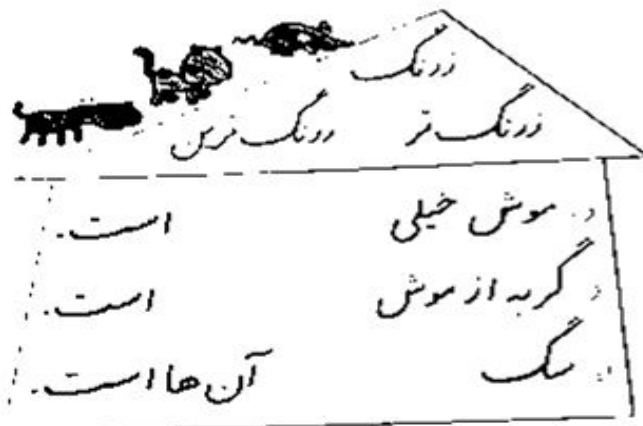 زرنگ
زرنگ تر زرنگ ترین
موش خیلی است.
گربه از موش است.
سگ آن ها است.